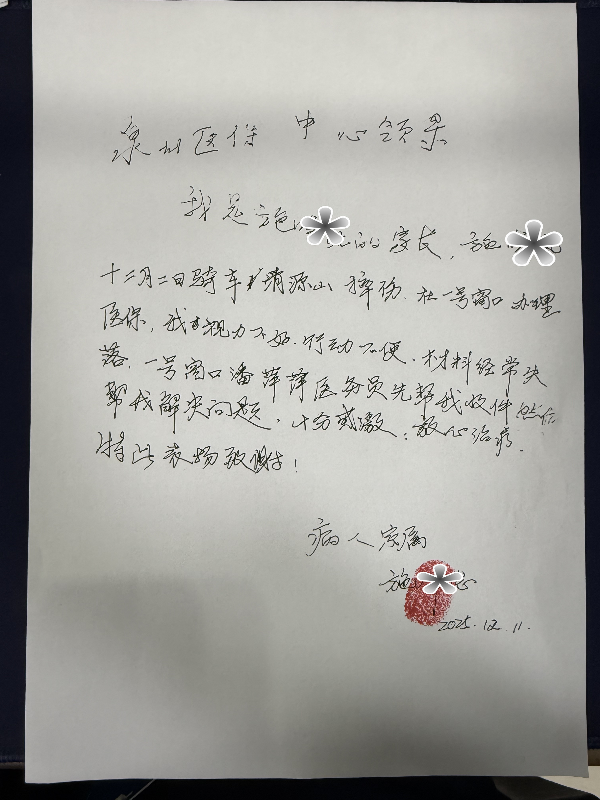 泉州医保中心领导
我是施 的家长,施
十二月二日骑车于清源山摔伤.在一号窗口办理
医保,我视力不好.行动不便.材料经常失
落.一号窗口潘萍萍医务员先帮我收件 然后
帮我解决问题,十分感激.放心治疗.
特此表扬致谢!
病人家属
施 心
2025.12.11.